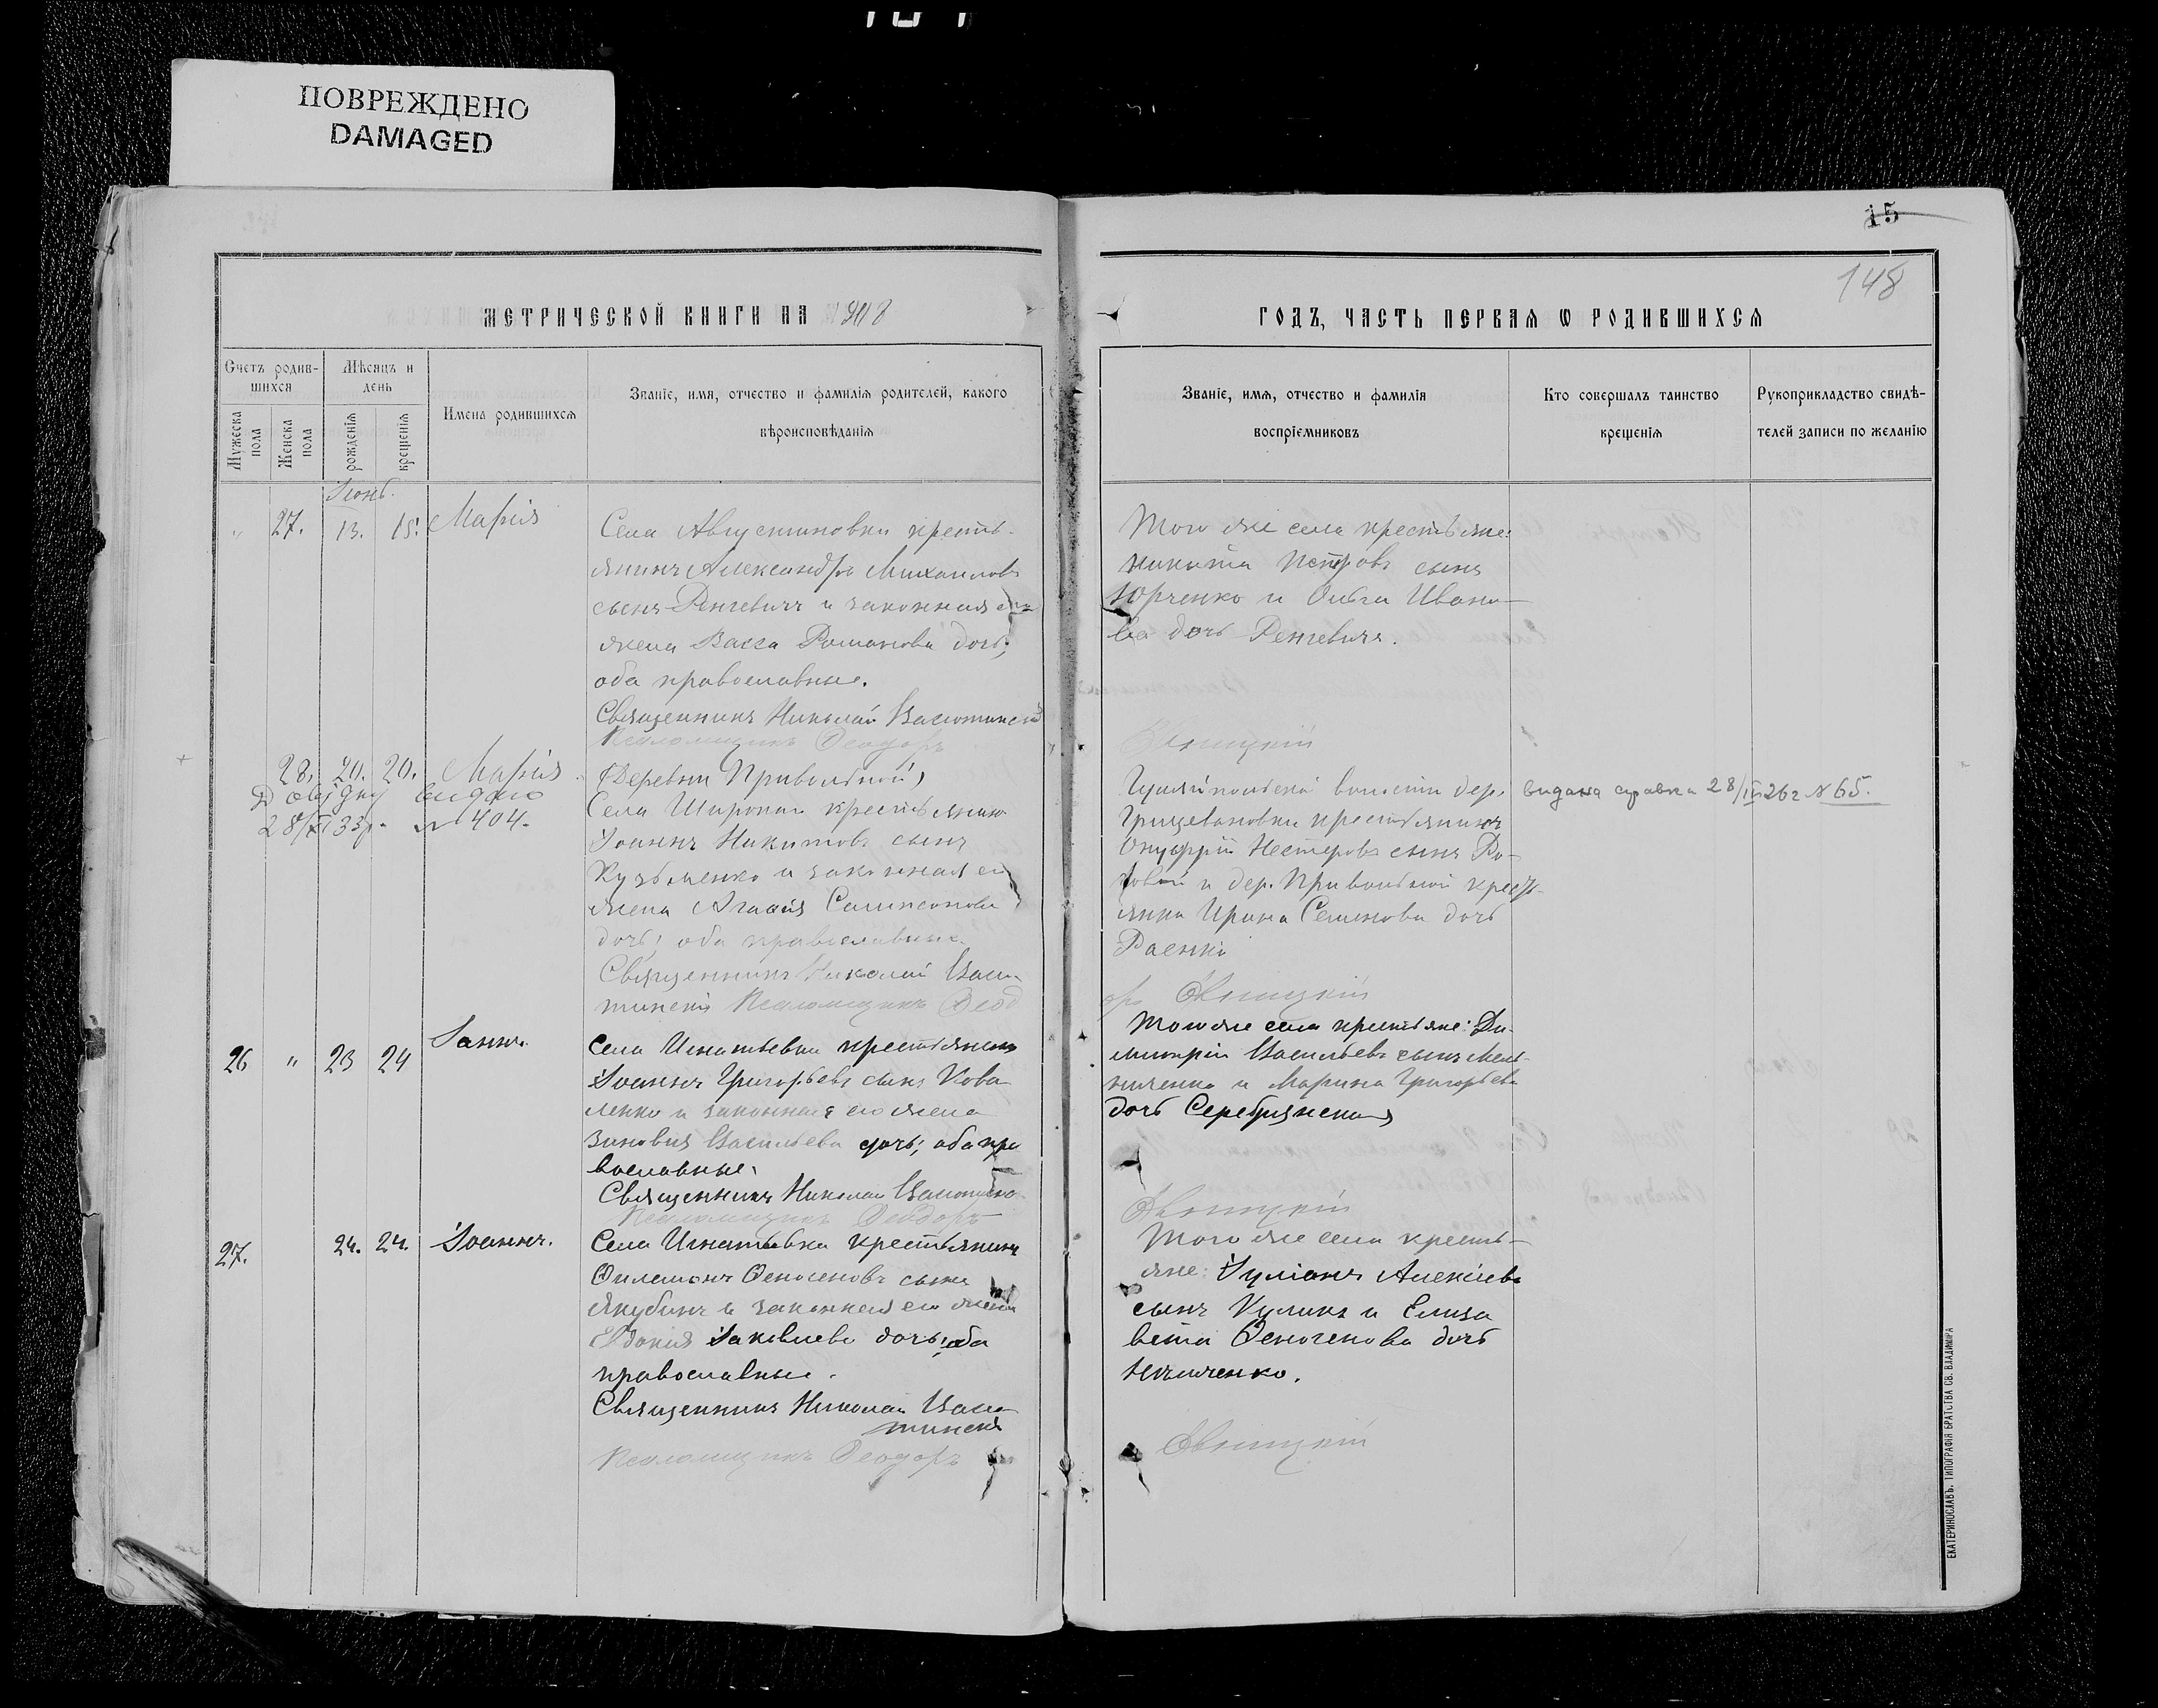 ПОВРЕЖДЕНО
DAMAGED
15
148
МЕТРИЧЕСКОЙ КНИГИ НА 1908
ГОДЪ, ЧАСТЬ ПЕРВАЯ Ѡ РОДИВШИХСЯ
Счетъ родив-
шихся
Мужеска пола
Женска пола
Мѣсяцъ и
день
рожденія
крещенія
Имена родившихся
Званіе, имя, отчество и фамилія родителей, какого
вѣроисповѣданія
Званіе, имя, отчество и фамилія
воспріемниковъ
Кто совершалъ таинство
крещенія
Рукоприкладство свидѣ-
телей записи по желанію
Іюнь.
" 27. 13. 15. Марія
Села Августиновки кресть-
янинъ Александръ Михаиловъ
сынъ Ренгевичъ и законная его
жена Васса Романова дочь;
оба православные.
Священникъ Николай
Псаломщикъ Ѳеодоръ
Того же села крестьяне:
Никита Петровъ сынъ
Юрченко и Ольга Ивано-
ва дочь Ренгевичъ.
28. 20. 20. Марія
видано
28/ 33р. № 404.
(Деревни Привольной)
Села Широкаго крестьянинъ
Іоаннъ Никитовъ сынъ
Кузьменко и законная его
жена Агафія Сампсонова
дочь; оба православные.
Священникъ Николай
Псаломщикъ Ѳеод
Гуляйпольской волости дер.
крестьянинъ
Онуфрій Нестеровъ сынъ
и дер. Привольной кресть-
янка Ирина Семенова дочь
Раенко
оръ
видана справка 28/ 26 г № 65.
26 " 23 24 Іоаннъ.
Села Игнатьевки крестьянинъ
Іоаннъ Григорьевъ сынъ Кова-
ленко и законная его жена
Зиновія Васильева дочь; оба пра
вославные.
Священникъ Николай
Псаломщикъ Ѳеодоръ
Того же села крестьяне: Ди-
митрій Васильевъ сынъ Мель-
ниченко и Марина Григорьева
дочь Серебрянская
27. 24. 24. Іоаннъ.
Села Игнатьевки крестьянинъ
Филимонъ Ѳеногеновъ сынъ
Якубинъ и законная его жена
Евдокія Іаковлева дочь; оба
православные.
Священникъ Николай
Псаломщикъ Ѳеодоръ
Того же села кресть-
яне: Іуліанъ Алексіевъ
сынъ Куликъ и Елиза
вета Ѳеногенова дочь
ЕКАТЕРИНОСЛАВЪ. ТИПОГРАФІЯ БРАТСТВА СВ. ВЛАДИМІРА